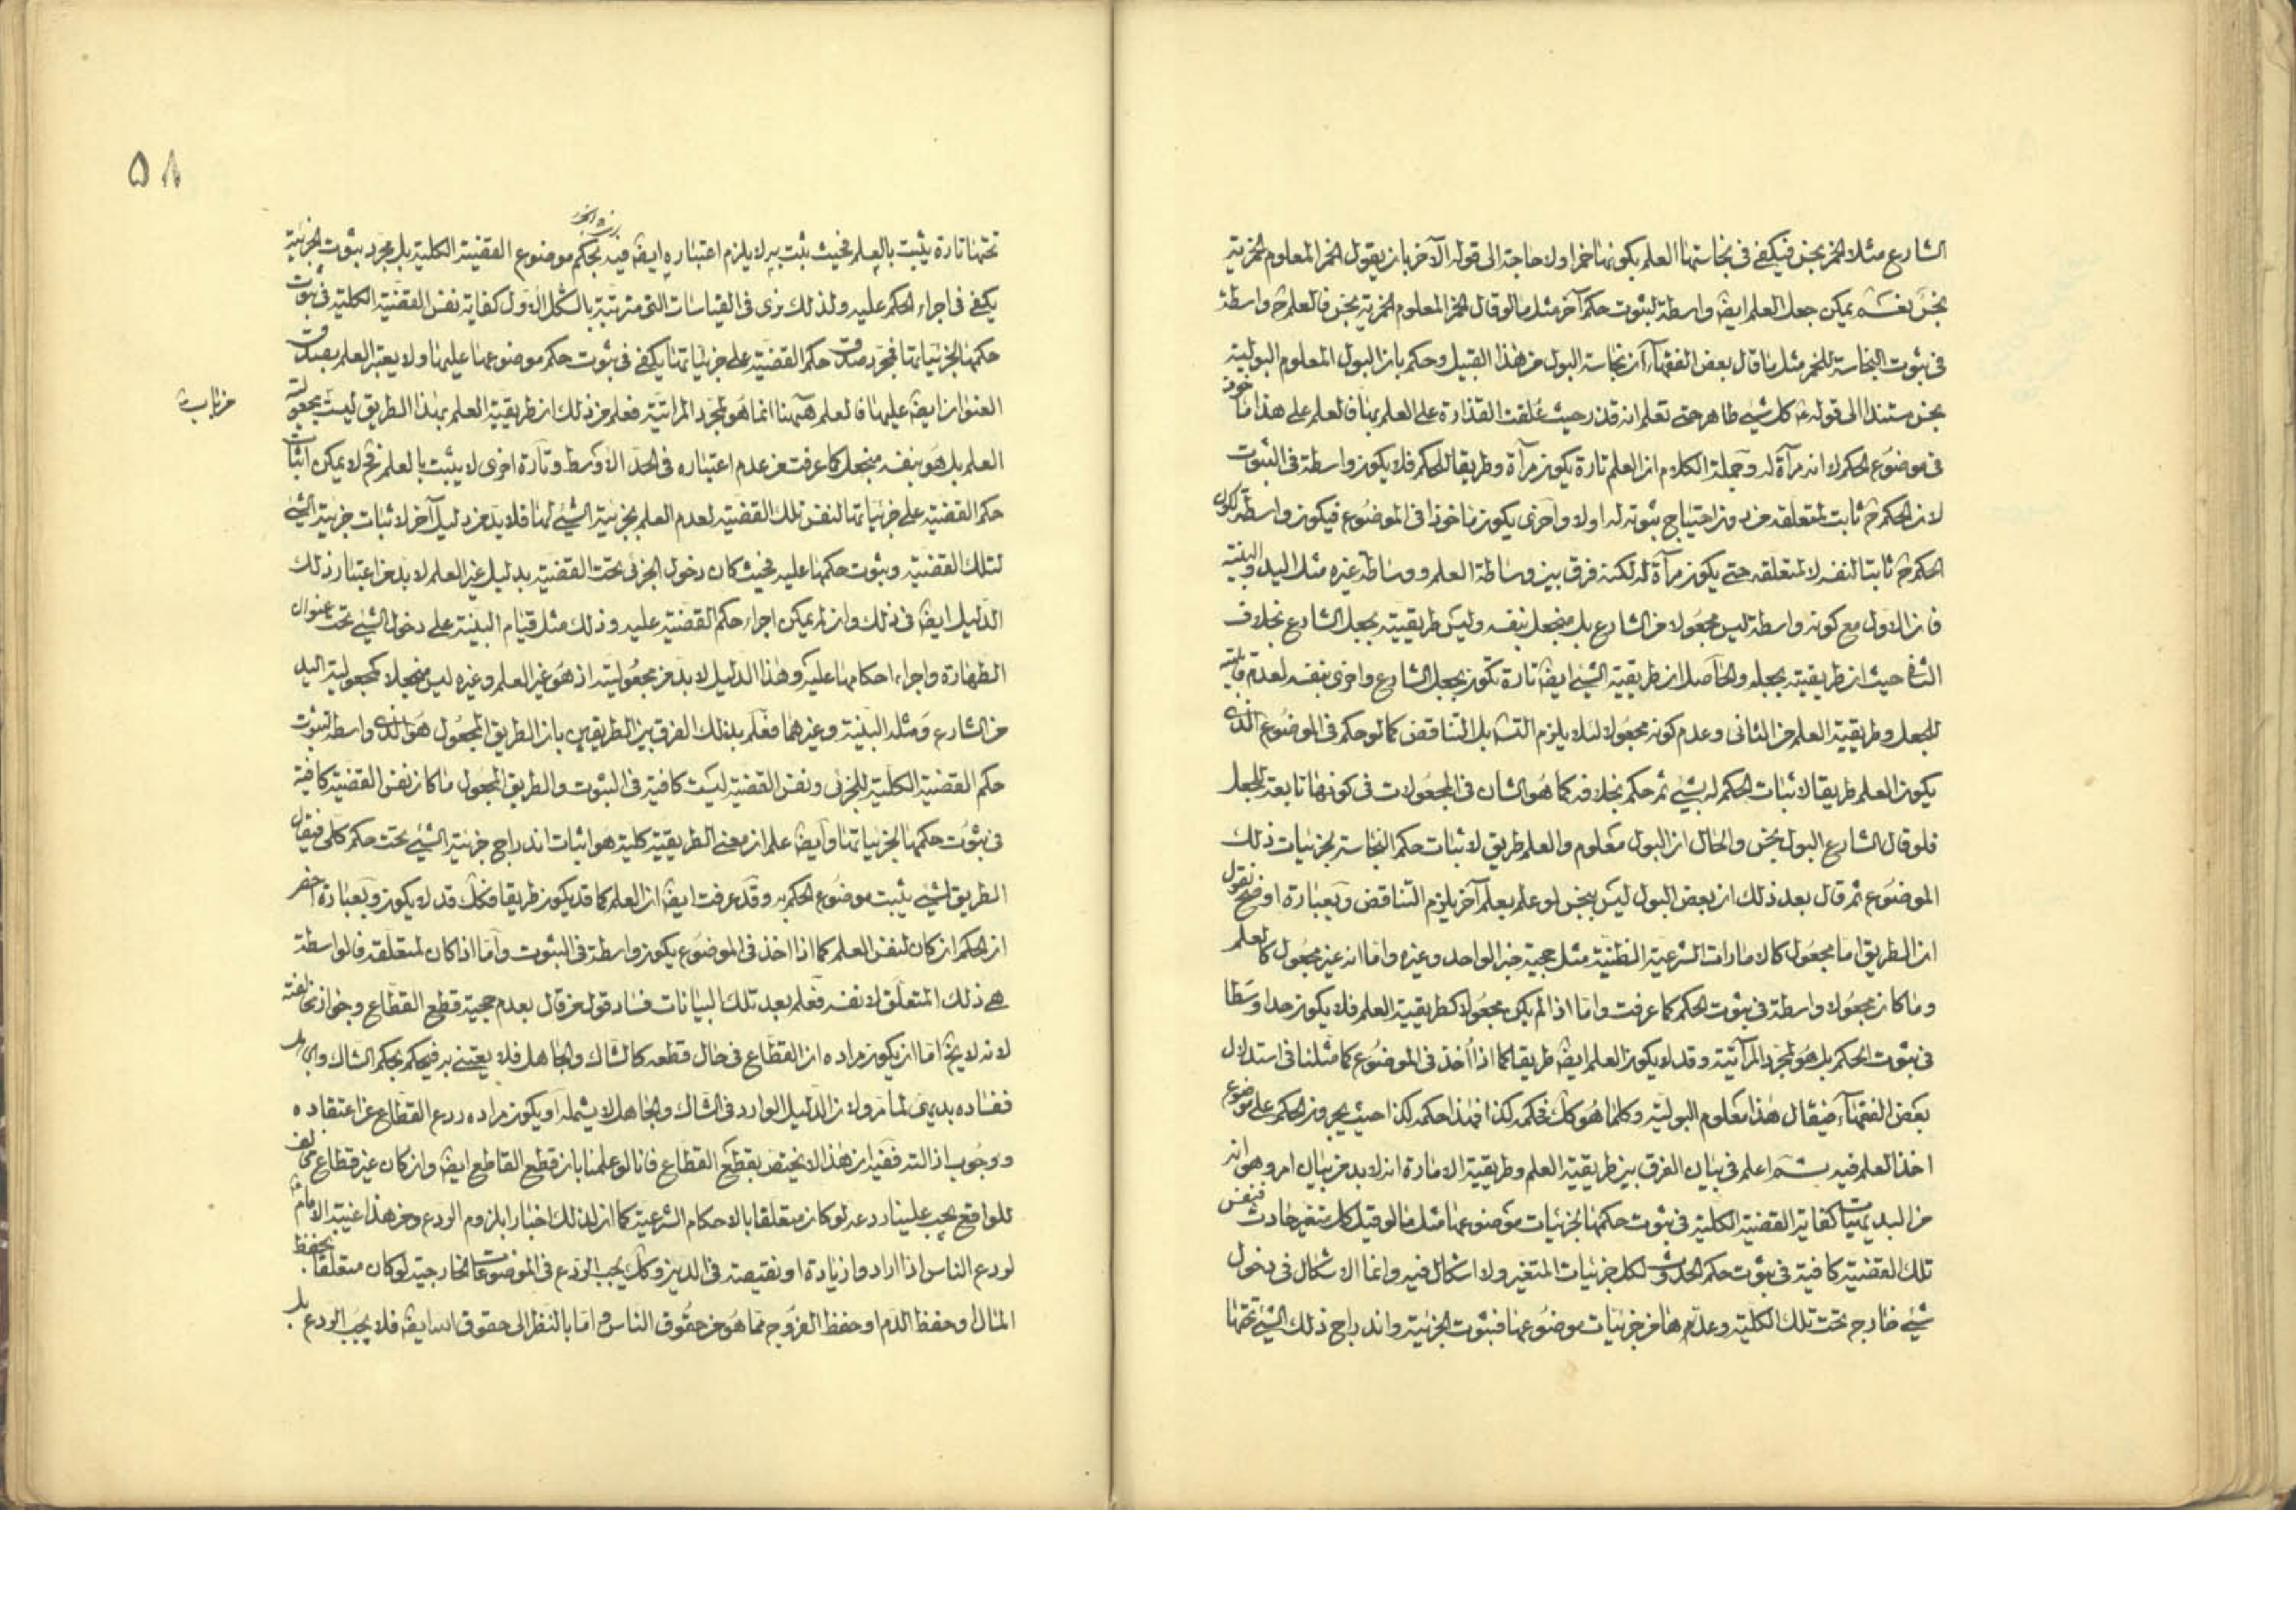 الشارع مثلا الخمر نجس فيكفى فى نجاستها العلم بكونها خمرا ولا حاجة الى قوله الآخر بان يقول الخمر المعلوم الخمرية
نجس نعم يمكن جعل العلم ايضا واسطة لثبوت حكم آخر مثل ما لو قال الخمر المعلوم الخمرية نجس فالعلم ح واسطة
فى ثبوت النجاسة للخمر مثل ما قال بعض الفقهاء ان نجاسة البول من هذا القبيل وحكم بان البول المعلوم البولية
نجس مستندا الى قوله ع كل شئ طاهر حتى تعلم انه قذر حيث علقت القذارة على العلم بها فالعلم على هذا ماخوذ
فى موضوع الحكم لا انه مرآة له وجملة الكلام ان العلم تارة يكون مرآة وطريقا للحكم فلا يكون واسطة فى الثبوت
لان الحكم ح ثابت لمتعلقه من دون احتياج ثبوته له اولا واخرى يكون ماخوذا فى الموضوع فيكون واسطة لكون
الحكم ح ثابتا لنفسه لا لمتعلقه حتى يكون مرآة له لكنه فرق بين وساطة العلم ووساطة غيره مثل اليد والبينة
فان الاول مع كونه واسطة ليس مجعولا من الشارع بل منجعل بنفسه وليس طريقيته بجعل الشارع بخلاف
الثانى حيث ان طريقيته بجعله والحاصل ان طريقية الشئ ايضا تارة تكون بجعل الشارع واخرى بنفسه لعدم قابليته
للجعل وطريقية العلم من الثانى وعدم كونه مجعولا لئلا يلزم التسلسل بل التناقض كما لو حكم فى الموضوع الذى
يكون العلم طريقا لاثبات الحكم له بشئ ثم حكم بخلافه كما هو الشان فى المجعولات فى كونها تابعة للجعل
فلو قال الشارع البول نجس والحال ان البول معلوم والعلم طريق لاثبات حكم النجاسة لجزئيات ذلك
الموضوع ثم قال بعد ذلك ان بعض البول ليس بنجس لو علم بعلم آخر يلزم التناقض وبعبارة اوضح نقول
ان الطريق اما مجعول كالامارات الشرعية الظنية مثل حجية خبر الواحد وغيره واما انه غير مجعول كالعلم
وما كان مجعولا واسطة فى ثبوت الحكم كما عرفت واما اذا لم يكن مجعولا كطريقية العلم فلا يكون حدا وسطا
فى ثبوت الحكم بل هو لمجرد المرآتية وقد لا يكون العلم ايضا طريقا كما اذا اخذ فى الموضوع كما مثلنا فى استدلال
بعض الفقهاء فيقال هذا معلوم البولية وكلما هو كك فحكمه كذا فهذا حكمه كذا حيث يجرون الحكم على موضوع
اخذ العلم فيه ثم اعلم فى بيان الفرق بين طريقية العلم وطريقية الامارة انه لا بد من بيان امر وهو انه
من البديهيات كفاية القضية الكلية فى ثبوت حكمها لجزئيات موضوعها مثل ما لو قيل كل متغير حادث فنفس
تلك القضية كافية فى ثبوت حكم الحدوث لكل جزئيات المتغير ولا اشكال فيه وانما الاشكال فى دخول
شئ خارج تحت تلك الكلية وعده من جزئيات موضوعها فثبوت الجزئية واندراج ذلك الشئ تحتها
٥٨
تحتها تارة يثبت بالعلم فحيث ثبت به لا يلزم اعتباره ايضا فيه بحكم موضوع القضية الكلية بل مجرد ثبوت الجزئية
يكفى فى اجراء الحكم عليه ولذلك نرى فى القياسات التى مترتبة بالشكل الاول كفاية نفس القضية الكلية فى ثبوت
حكمها لجزئياتها فمجرد صدق حكم القضية على جزئياتها يكفى فى ثبوت حكم موضوعها عليها ولا يعتبر العلم بصدق
العنوان ايضا عليها فالعلم ههنا انما هو لمجرد المراتية فعلم من ذلك ان طريقية العلم بهذا الطريق ليست بمجعولة
العلم بل هو بنفسه منجعل كما عرفت من عدم اعتباره فى الحد الاوسط وتارة اخرى لا يثبت بالعلم فح لا يمكن اثبات
حكم القضية على جزئياتها لنفس تلك القضية لعدم العلم بجزئية الشئ لها فلا بد من دليل آخر لاثبات جزئية الشئ
لتلك القضية وثبوت حكمها عليه فحيث كان دخول الجزئى تحت القضية بدليل غير العلم لا بد من اعتبار ذلك
الدليل ايضا فى ذلك وان لم يمكن اجراء حكم القضية عليه وذلك مثل قيام البينة على دخول الشئ تحت عنوان
الطهارة واجراء احكامها عليه وهذا الدليل لا بد من مجعوليته اذ هو غير العلم وغيره ليس منجعلا كمجعولية اليد
من الشارع ومثله البينة وغيرهما فعلم بذلك الفرق بين الطريقين بان الطريق المجعول هو الذى واسطة لثبوت
حكم القضية الكلية للجزئى ونفس القضية ليست كافية فى الثبوت والطريق المجعول ما كان نفس القضية كافية
فى ثبوت حكمها لجزئياتها وايضا علم ان معنى الطريقية كلية هو اثبات اندراج جزئية الشئ تحت حكم كلى فيقال
الطريق لشئ يثبت موضوع الحكم به وقد عرفت ايضا ان العلم كما قد يكون طريقا فكك قد لا يكون وبعبارة اخصر
ان الحكم ان كان لنفس العلم كما اذا اخذ فى الموضوع يكون واسطة فى الثبوت واما اذا كان لمتعلقه فالواسطة
هى ذلك المتعلق لا نفسه فعلم بعد تلك البيانات فساد قول من قال بعدم حجية قطع القطاع وجواز مخالفته
لانه لا يخ اما ان يكون مراده ان القطاع فى حال قطعه كالشاك والجاهل فلا يعتنى به فيحكم بحكم الشاك والجاهل
ففساده بديهى لما مر ولان الدليل الوارد فى الشاك والجاهل لا يشمله او يكون مراده ردع القطاع عن اعتقاده
ووجوب ازالته ففيه ان هذا لا يختص بقطع القطاع فانا لو علمنا بان قطع القاطع ايضا وان كان غير قطاع مخالف
للواقع يجب علينا ردعه لو كان متعلقا بالاحكام الشرعية كما ان لذلك اخبارا بلزوم الردع ومن هذا غيبة الامام ع
لردع الناس اذا ارادوا زيادة او نقيصة فى الدين وكك يجب الردع فى الموضوعات الخارجية لو كان متعلقا بحفظ
المال او حفظ الدم او حفظ الفروج مما هو من حقوق الناس واما بالنظر الى حقوق الله ايضا فلا يجب الردع بل